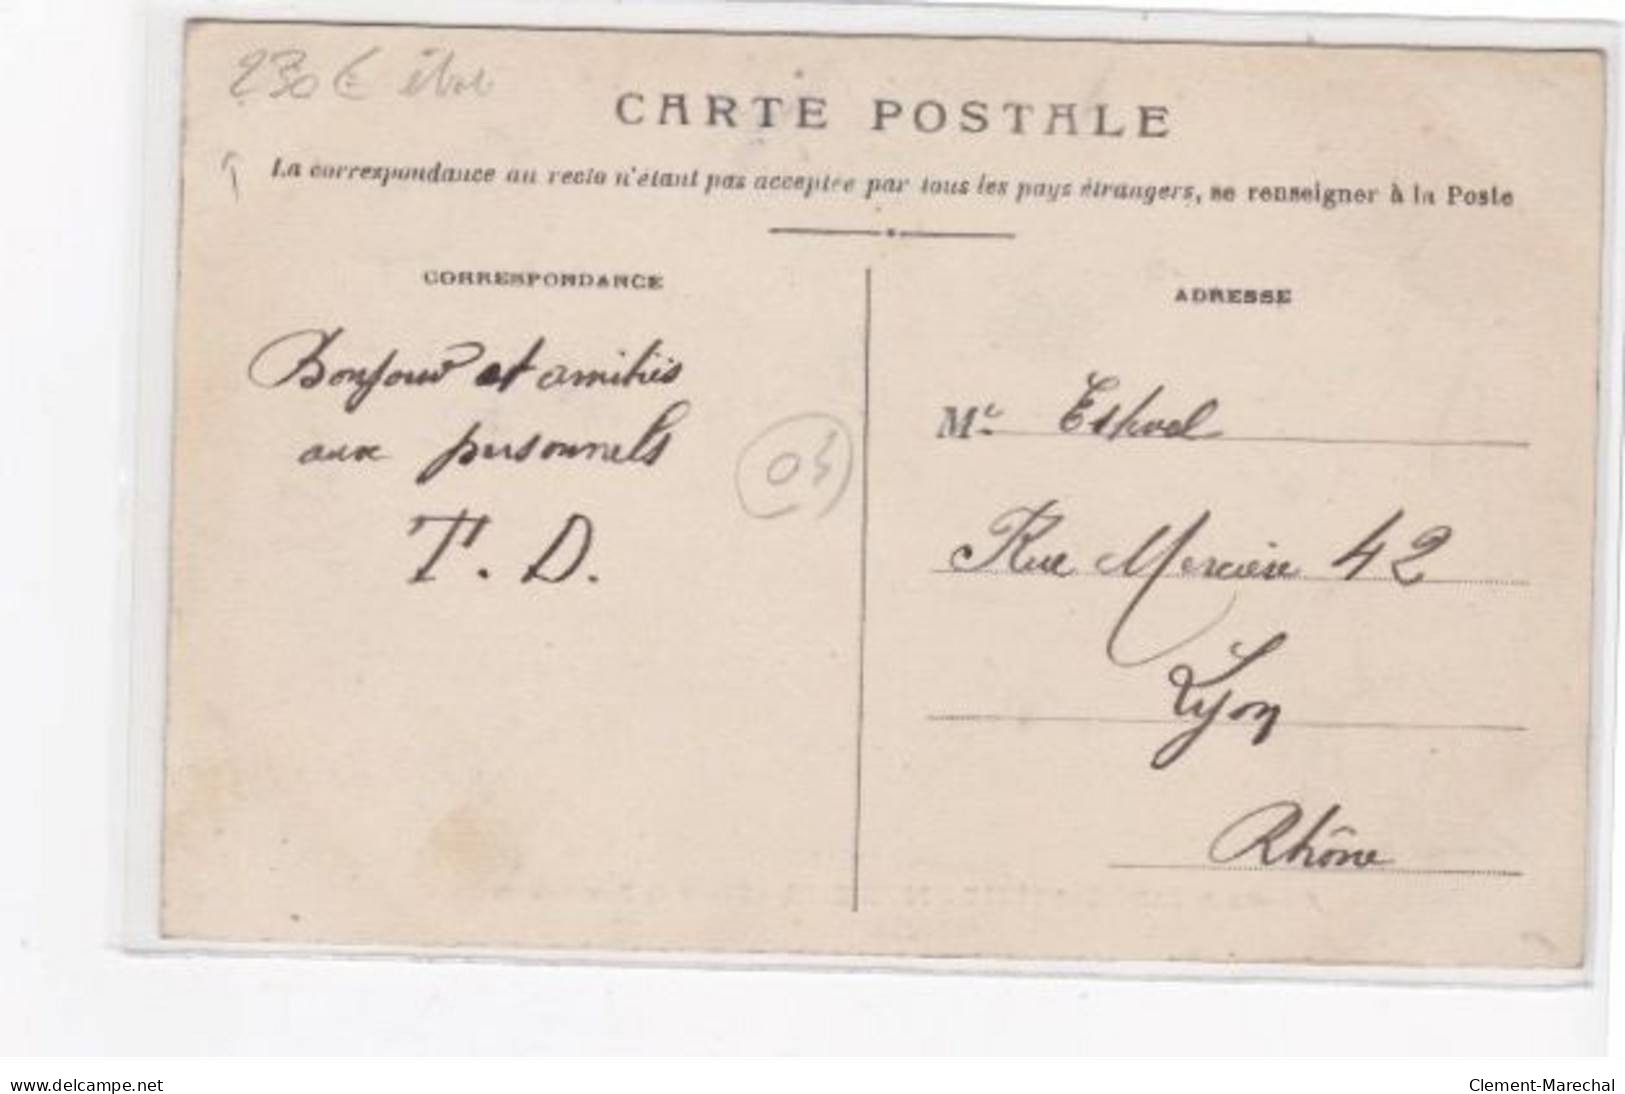 230 €
CARTE POSTALE
La correspondance au recto n'étant pas acceptée par tous les pays étrangers, se renseigner à la Poste
CORRESPONDANCE
Bonjour et amitiés
aux personnels
T. D.
04
ADRESSE
Mr
Rue Mercière 42
Lyon
Rhône
www.delcampe.net
Clement-Marechal